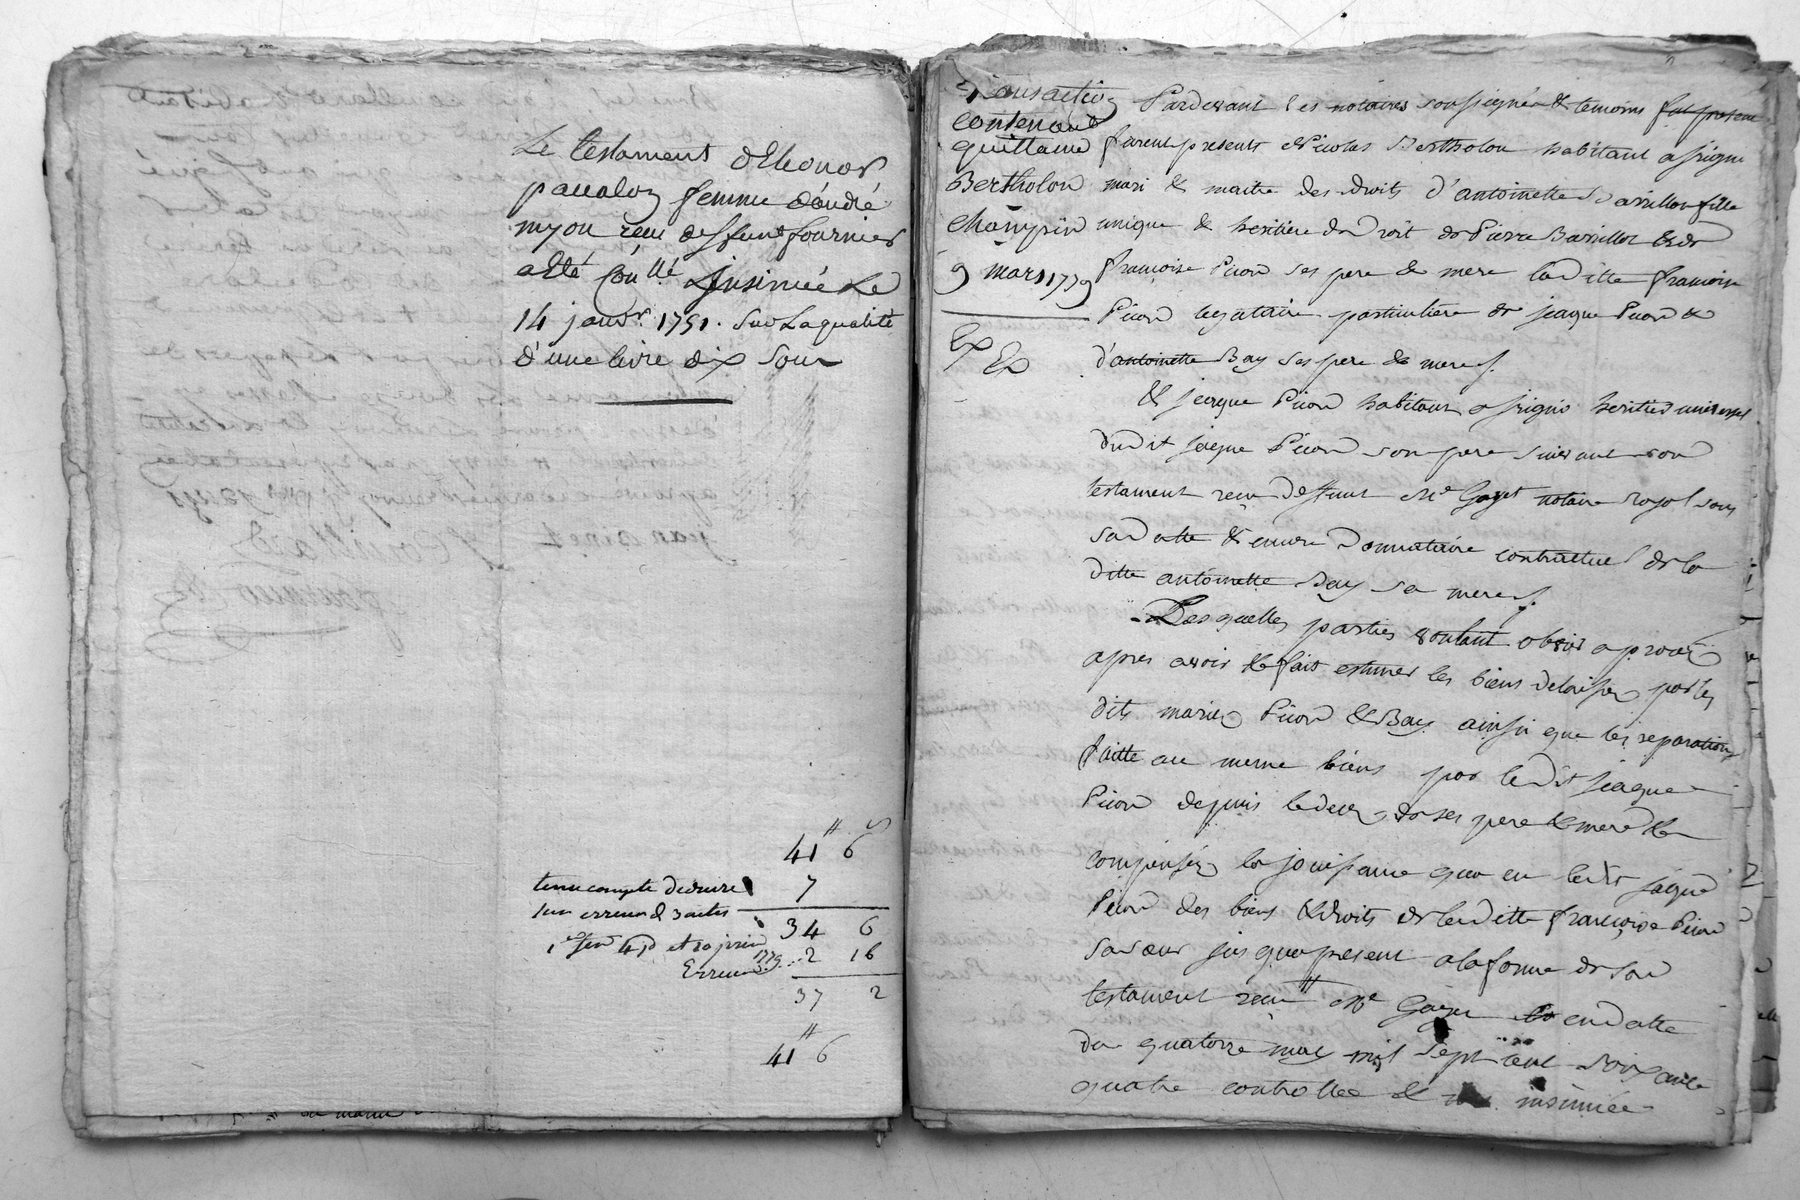 Le testament d'Eleonor
paualoz femme d'andré
myon recu deffunt fournier
a Eté Con.llé Jnsinuée Le
14 janv.r 1791. Sur La qualité
d'une livre dix Sour
41 # 6 s
tenu compte d'erreur 7
sur erreur d 3 actes 34 6
1er et 10 juin
Erreur 1779 .. 2 16
37 2
41 # 6
Transaction
contenant
quittance
Bertholon
9 mars 1779
Pardevant les notaires soussignés & temoins fut present
furent presents Nicolas Bertholon habitant a
mari & maitre des droits d'antoinette Barrillon fille
unique & heritiere de droit de Pierre Barrillot & de
françoise Picon ses pere & mere laditte françoise
Picon legataire particuliere de jeaque Picon &
d'antoinette Bay ses pere & mere /.
& jeaque Picon habitant a heritier universel
dudit jeaque Picon son pere suivant son
testament recu deffunt Me Gayet notaire Royal sous
sa datte & encore donnataire contractuel de la
ditte antoinette Bay sa mere /.
Lesquelles parties voulant obvier a procès
apres avoir fait estimer les biens delaissés par les
dits mariés Picon & Bay ainsi que les reparations
faitte au meme biens par ledit jeaque
Picon depuis le deces de ses pere & mere &
compensés la jouissance qua eu ledit jaque
Picon des biens & droits de laditte françoise Picon
sa sœur jusqua present a la forme de son
testament recu Me Gayet en datte
du quatorze may mil sept cent soixante
quatre controllée & insinuée